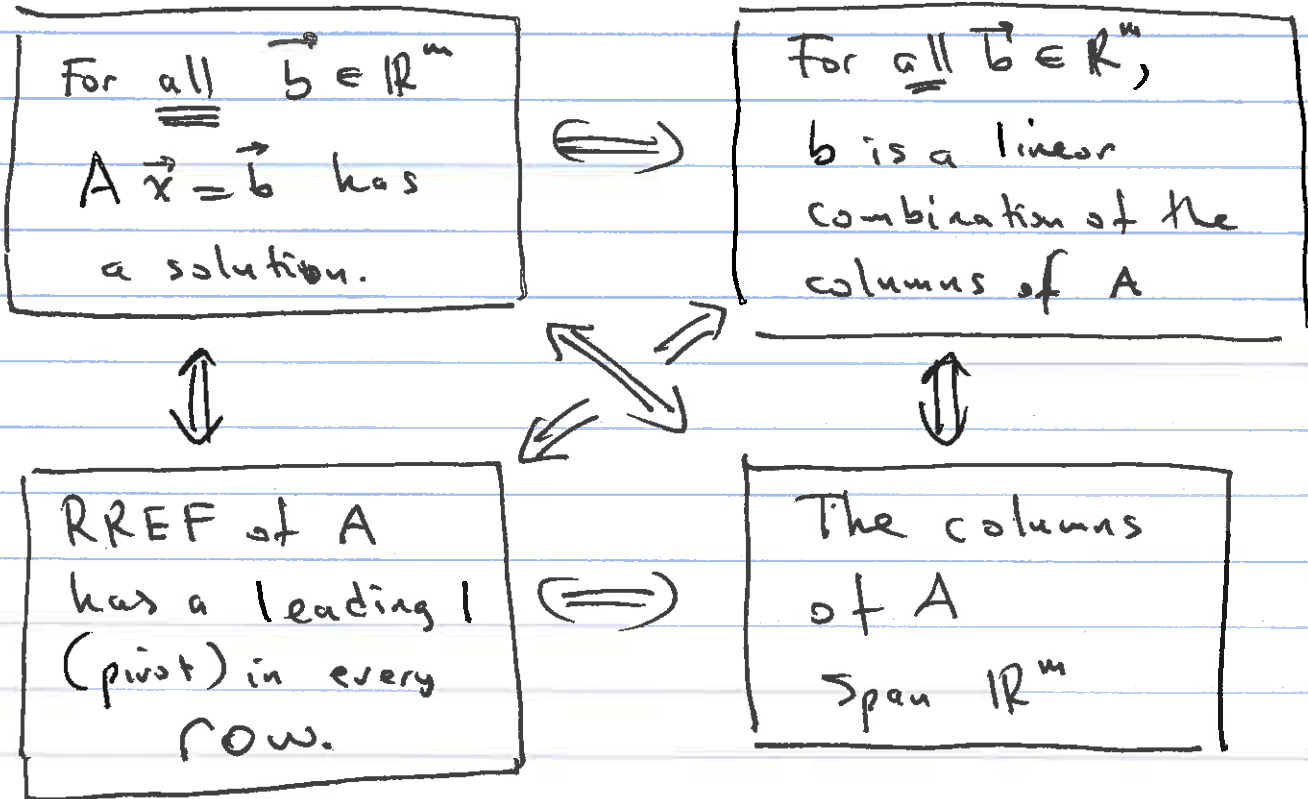 For all b⃗ ∈ ℝᵐ
A x⃗ = b⃗ has
a solution.
⟺
For all b⃗ ∈ ℝᵐ,
b is a linear
combination of the
columns of A
RREF of A
has a leading 1
(pivot) in every
row.
⟺
The columns
of A
span ℝᵐ